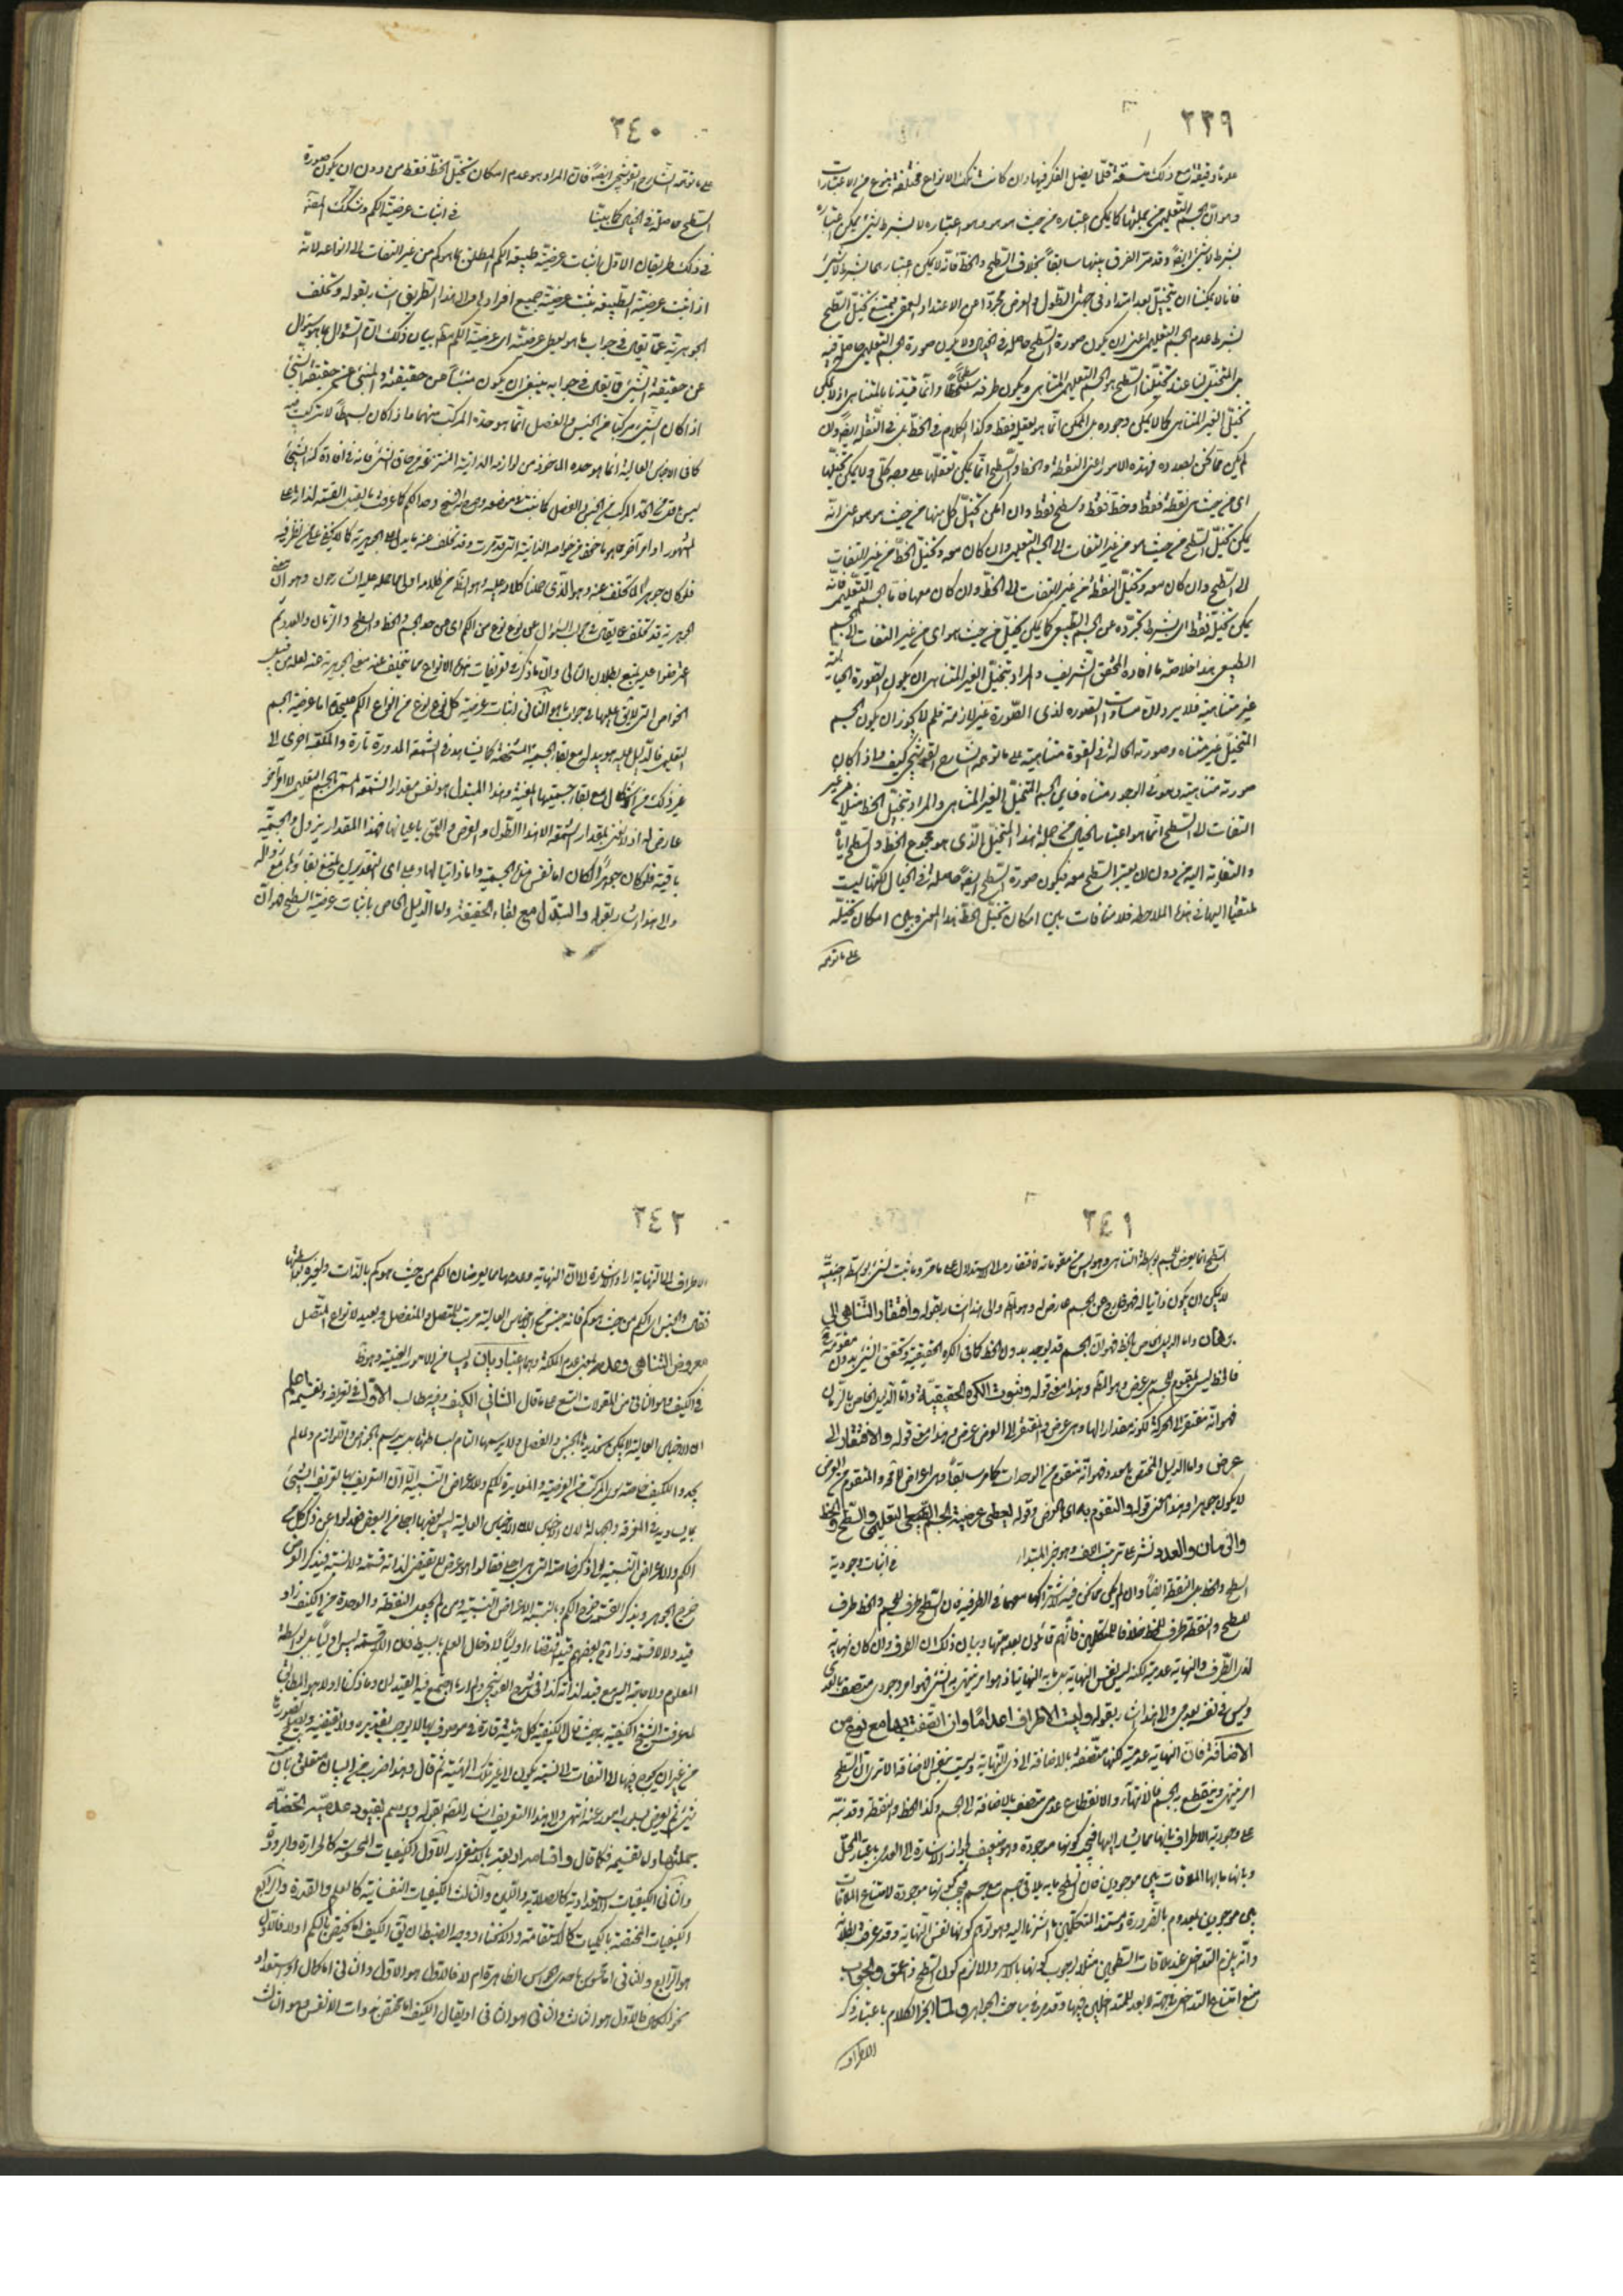 ٣٣٩
علوما دقيقة مع ذلك متسقة قلما يضل الفكر فيها وان كانت تلك الانواع مختلفة بنوع من الاعتبارات
وهو ان الجسم التعليمي من جملتها كما يمكن اعتباره من حيث هو هو وهو اعتباره لا بشرط شيء يمكن اعتباره
بشرط لا شيء ايضا وقد مر الفرق بينهما سابقا بخلاف السطح والخط فانه لا يمكن اعتبارهما بشرط لا شيء
فانا لا يمكننا ان نتخيل بعدا ممتدا في جهتي الطول والعرض مجردا عن الامتداد العمقي فيمتنع تخيل السطح
بشرط عدم الجسم التعليمي اعني ان يكون صورة السطح حاصلة في الخيال ولا يكون صورة الجسم التعليمي حاصلة فيه
بل المتخيل لنا عند تخيلنا السطح هو الجسم التعليمي المتناهي ويكون طرفه سطحا وانما قيدنا بالمتناهي اذ لا يمكن
تخيل الغير المتناهي كما لا يمكن وجوده بل الممكن انما هو تعقله فقط وكذا الكلام في الخط بل في النقطة ايضا وان
لم يكن مما نحن بصدده فهذه الامور اعني النقطة والخط والسطح انما يمكن تعقلها على وجه كلي ولا يمكن تخيلها
اي من حيث هي نقطة فقط وخط فقط وسطح فقط وان امكن تخيل كل منها من حيث هو هو اعني انه
يمكن تخيل السطح من حيث هو من غير التفات الى الجسم التعليمي وان كان معه وتخيل الخط من غير التفات
الى السطح وان كان معه وتخيل النقطة من غير التفات الى الخط وان كان معها فاما الجسم التعليمي فانه
يمكن تخيل فقط اي بشرط تجرده عن الجسم الطبيعي كما يمكن تخيل من حيث هو اي من غير التفات الى الجسم
الطبيعي هذا خلاصة ما افاده المحقق الشريف والمراد بتخيل الغير المتناهي ان يكون الصورة الخيالية
غير متناهية فلا يرد ان مساواة الصورة لذي الصورة غير لازمة فلم لا يجوز ان يكون الجسم
المتخيل غير متناه وصورته الحالة في القوة متناهية على ما توهمه الشارح القوشجي كيف واذا كان
صورته متناهية وهو في الوجود متناه فاين الجسم المتخيل الغير المتناهي والمراد بتخيل الخط مثلا من غير
التفات الى السطح انما هو اعتبار الخيال من جملة هذا المتخيل الذي هو مجموع الخط والسطح اياه
والتفاته اليه من دون ان يعتبر السطح معه فيكون صورة السطح ايضا حاصلة في الخيال لكنها ليست
ملتفتا اليها في هذه الملاحظة فلا منافات بين امكان تخيل الخط بهذا المعنى وبين امكان تخيله
على ما توهمه
٣٤٠
على ما توهمه الشارح القوشجي ايضا فان المراد هو عدم امكان تخيل الخط فقط من دون ان يكون صورة
السطح حاصلة في الخيال كما بينا في اثبات عرضية الكم وتسلك المصنف
في ذلك طريقان الاول اثبات عرضية طبيعة الكم المطلق بما هو كم من غير التفات الى انواعه لانه
اذا ثبت عرضية الطبيعة ثبت عرضية جميع افرادها والى هذا الطريق اشار بقوله وتخلف
الجوهرية عما يقال في جواب ما هو يعطي عرضيته اي عرضية الكم مطلقا بيان ذلك ان السؤال بما هو سؤال
عن حقيقة الشيء فما يقال في جوابه ينبغي ان يكون منبئا عن حقيقته والمنبئ عن حقيقة الشيء
اذا كان الشيء مركبا من الجنس والفصل انما هو حده المركب منهما واذا كان بسيطا لا تركيب فيه
كما في الاجناس العالية انما هو حده الماخوذ من لوازمه الذاتية المنتزعة من حاق الشيء فانه في افادة كنه الشيء
ليس باقل من الحد المركب من الجنس والفصل كما ثبت في موضعه وصرح به الشيخ وحد الكم كما عرفت ما يقبل القسمة لذاته على
المشهور او امر آخر مما هو ماخوذ من خواصه الذاتية التي قد مرت وقد تخلف عنه ما يدل على الجوهرية كما لا يخفى على من نظر فيه
فلو كان جوهرا لما تخلف عنه وهو الذي حملنا كلامه عليه هو الظاهر من كلامه اولى مما حمله عليه الشارحون وهو ان
الجوهرية قد تخلف عما يقال في جواب السؤال عن نوع نوع من الكم اي عن حد الجسم والخط والسطح والزمان والعدد ثم
الخواص التي تلائق عليها في جواب ما هو الثاني اثبات عرضية كل نوع نوع من انواع الكم عليحدة اما عرضية الجسم
التعليمي فالدليل عليه هو تبدله مع بقاء الجسمية الشخصية كما يشاهد في الشمعة المدورة تارة والمكعبة اخرى الى
غير ذلك من الاشكال مع بقاء جسميتها المعينة وهذا المتبدل هو نفس مقدار الشمعة المسمى بالجسم التعليمي لا امر آخر
عارض له اذ لا نعني بمقدار الشمعة الا هذا الطول والعرض والعمق باعيانها فهذا المقدار يزول والجسمية
باقية فلو كان جوهرا لكان اما نفس هذه الجسمية واما ذاتيا لها وعلى اي التقديرين يمتنع بقاؤها مع زواله
والى هذا اشار بقوله والتبدل مع بقاء الحقيقة واما الدليل الخاص باثبات عرضية السطح فهو ان
٣٤١
السطح انما يعرض للجسم بواسطة التناهي وهو ليس من مقوماته فافتقاره الى الاستدلال على ما مر وما يثبت لشيء بواسطة اجنبية
لا يمكن ان يكون ذاتيا له فهو خارج عن الجسم عارض له وهو المط والى هذا اشار بقوله وافتقار التناهي الى
برهان واما الدليل الخاص بالخط فهو ان الجسم قد يوجد بدون الخط كما في الكرة الحقيقية وتحقق الشيء بدون مقومه
فالخط ليس بمقوم للجسم بل عرض وهو المط وهذا معنى قوله وثبوت الكرة الحقيقية واما الدليل الخاص بالزمان
فهو انه مفتقر الى الحركة لكونه مقدارا لها وهي عرض والمفتقر الى العرض عرض وهذا معنى قوله والافتقار الى
عرض واما الدليل المختص بالعدد فهو انه متقوم من الوحدات كما مر سابقا وهي اعراض لما مر والمتقوم من العرض
لا يكون جوهرا وهذا معنى قوله والتقوم به اي بالعرض وقوله يعطي عرضية الجسم التعليمي والسطح والخط
والزمان والعدد نشر على ترتيب اللف وهو خبر المبتدا في اثبات وجودية
السطح والخط بل النقطة ايضا وان لم يكن مما نحن فيه لاشتراكها معهما في الطرفية فان السطح طرف للجسم والخط طرف
للسطح والنقطة طرف للخط خلافا للمتكلمين فانهم قائلون بعدميتها وبيان ذلك ان الطرف وان كان نهاية
لذي الطرف والنهاية عدمية لكنه ليس نفس النهاية بل ما به النهاية اذ هو امر ينتهي به الشيء فهو امر وجودي متصف بالعدمي
وليس في نفسه بعدمي والى هذا اشار بقوله وليست الاطراف اعداما وان اتصفت بها مع نوع من
الاضافة فان النهاية عدمية لكنها متصفة بالاضافة الى ذي النهاية وليست بنفس الاضافة الا ترى ان السطح
امر ينتهي وينقطع به الجسم فالانتهاء والانقطاع عدمي متصف بالاضافة الى الجسم وكذا الخط والنقطة وقد نبه
على وجودية الاطراف بانها مما يشار اليها فيجب كونها موجودة وهو ضعيف لجواز الاشارة الى العدمي باعتبار المحل
وبانها ما بها الملاقات بين موجودين فان السطح ما به يلاقي جسم مع جسم فيجب كونها موجودة لامتناع الملاقات
بين موجودين بالمعدوم بالضرورة ومستند المتكلمين ما اشرنا اليه وهو توهم كونها نفس النهاية وقد عرفت بطلانه
وانه يلزم التداخل عند ملاقات السطحين مثلا لوجوب كونها بالاسر والا لزم كون السطح ذا عمق والجواب
منع امتناع التداخل من جهة لا بعد للمتداخلين فيها وقد مر في مباحث الجواهر ولما انجر الكلام باعتبار ذكر
الاطراف
٣٤٢
الاطراف الى النهاية اراد الاشارة الى ان النهاية وعدمها مما يعرضان الكم من حيث هو كم بالذات ولغيره بواسطتها
فقال والجنس اي الكم من حيث هو كم فانه جنس من الاجناس العالية قريب للمتصل والمنفصل وبعيد لانواع المتصل
معروض التناهي وعدمه بمعنى عدم الملكة وهما اعتباريان وليسا من الامور العينية وهو ظ
في الكيف وهو الثاني من المقولات التسع على ما قال الثاني الكيف وفيه مطالب الاول في تعريفه وتقسيمه اعلم
ان الاجناس العالية لا يمكن تحديدها بالجنس والفصل ولا ترسيمها التام لبساطتها بل يرسم بالخواص واللوازم ولما لم
يجدوا للكيف خاصة سوى المركب من العرضية والمغايرة للكم والاعراض النسبية الا ان التعريف بها تعريف الشيء
بما يساويه في المعرفة والجهالة لان الاجناس العالية ليس بعضها اجلى من البعض فعدلوا عن ذكر كل من
الكم والاعراض النسبية الى ذكر خاصته التي هي اجلى فقالوا هو عرض لا يقتضي لذاته قسمة ولا نسبة فبذكر العرض
خرج الجوهر وبذكر القسمة خرج الكم وبالنسبة الاعراض النسبية ومن لم يجعل النقطة والوحدة من الكيف زاد
قيد ولا لا قسمة وزاد بعضهم قيد اقتضاء اوليا لادخال العلم بالبسيط فان اللاقسمة ليس اوليا بل بواسطة
المعلوم ولا حاجة اليه مع قيد لذاته كذا في شرح القوشجي
من غير ان يحوج فيها الى التفات الى نسبة يكون الى غير تلك الهيئة ثم قال وهذا ضرب من البيان متعلق بان
شيء ثم يعرض بسلوب امور عنه انتهى والى هذا التعريف اشار المصنف بقوله ويرسم بقيود عدمية تخصه
بجملتها واما تقسيمه فكما قال واقسامه اربعة بالاستقراء الاول الكيفيات المحسوسة كالحرارة والبرودة
والثاني الكيفيات الاستعدادية كالصلابة واللين والثالث الكيفيات النفسانية كالعلم والقدرة والرابع
الكيفيات المختصة بالكميات كالاستقامة والانحناء ووجه الضبط ان يقال الكيف اما يختص بالكم او لا فالاول
هو الرابع والثاني اما محسوس باحدى الحواس الظاهرة ام لا فالاول هو الاول والثاني اما كمال او استعداد
نحو الكمال فالاول هو الثالث والثاني هو الثاني او يقال الكيف اما مختص بذوات الانفس وهو الثالث